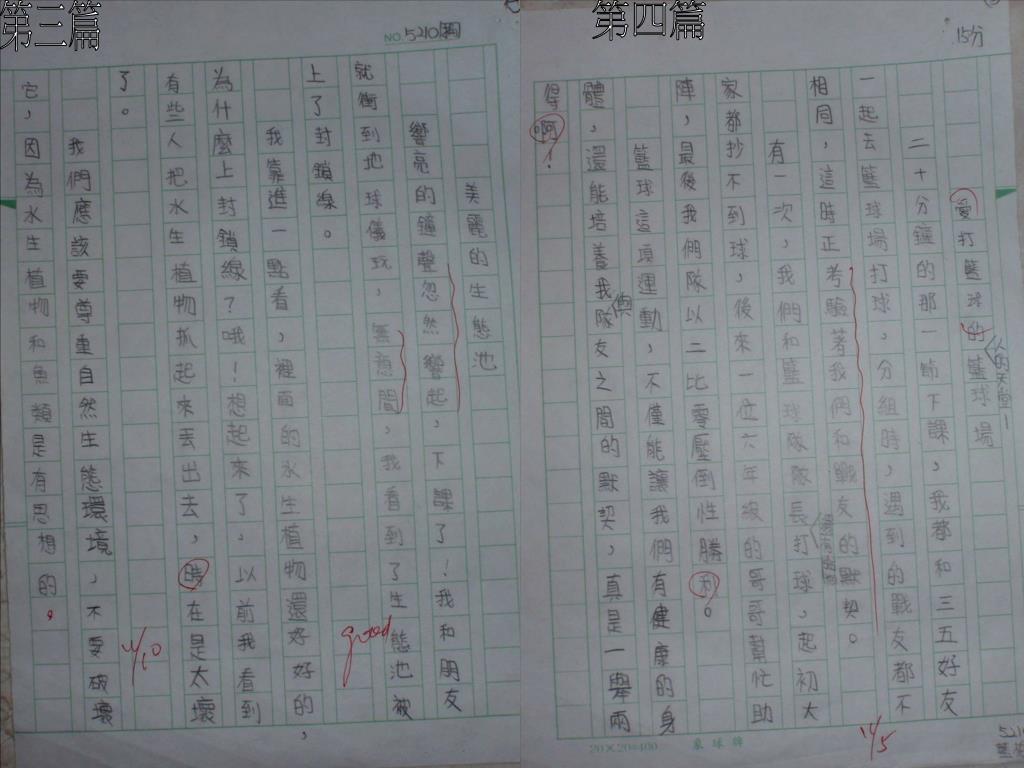 第三篇
NO. 5210
美麗的生態池
響亮的鐘聲忽然響起，下課了！我和朋友
就衝到地球儀玩，無意間，我看到了生態池被
上了封鎖線。
我靠進一點看，裡面的水生植物還好好的，
為什麼上封鎖線？哦！想起來了，以前我看到
有些人把水生植物抓起來丟出去，時在是太壞
了。
我們應該要尊重自然生態環境，不要破壞
它，因為水生植物和魚類是有思想的。
good
11/10
第四篇
15分
愛打籃球的籃球場
二十分鐘的那一節下課，我都和三五好友
一起去籃球場打球，分組時，遇到的戰友都不
相同，這時正考驗著我們和戰友的默契。
有一次，我們和籃球隊隊長打球，起初大
家都抄不到球，後來一位六年級的哥哥幫忙助
陣，最後我們隊以二比零壓倒性勝利。
籃球這項運動，不僅能讓我們有健康的身
體，還能培養我與隊友之間的默契，真是一舉兩
得啊！
11/5
20×20=400